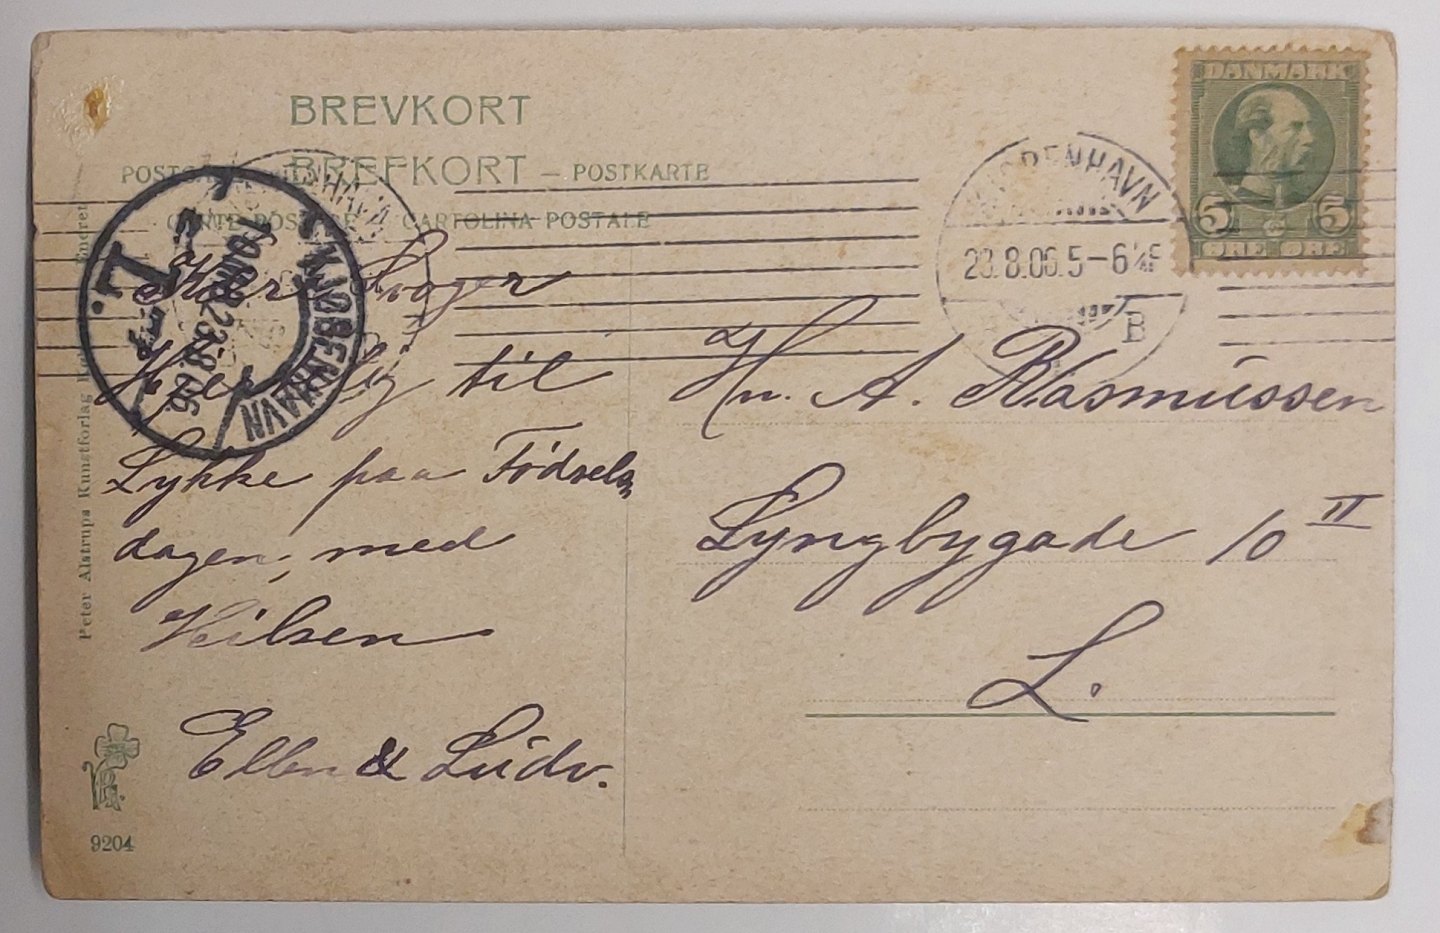 BREVKORT
BREFKORT – POSTKARTE
CARTOLINA POSTALE
DANMARK
5 5
ØRE ØRE
KJØBENHAVN
23.8.06.5-6
B
KJØBENHAVN
L.
23.8.06
Kære Svoger
Hjertelig til
Lykke paa Fødsels
dagen, med
Hilsen
Ellen & Ludv.
Hr. A. Rasmussen
Lyngbygade 10 II
L.
Peter Alstrups Kunstforlag
9204